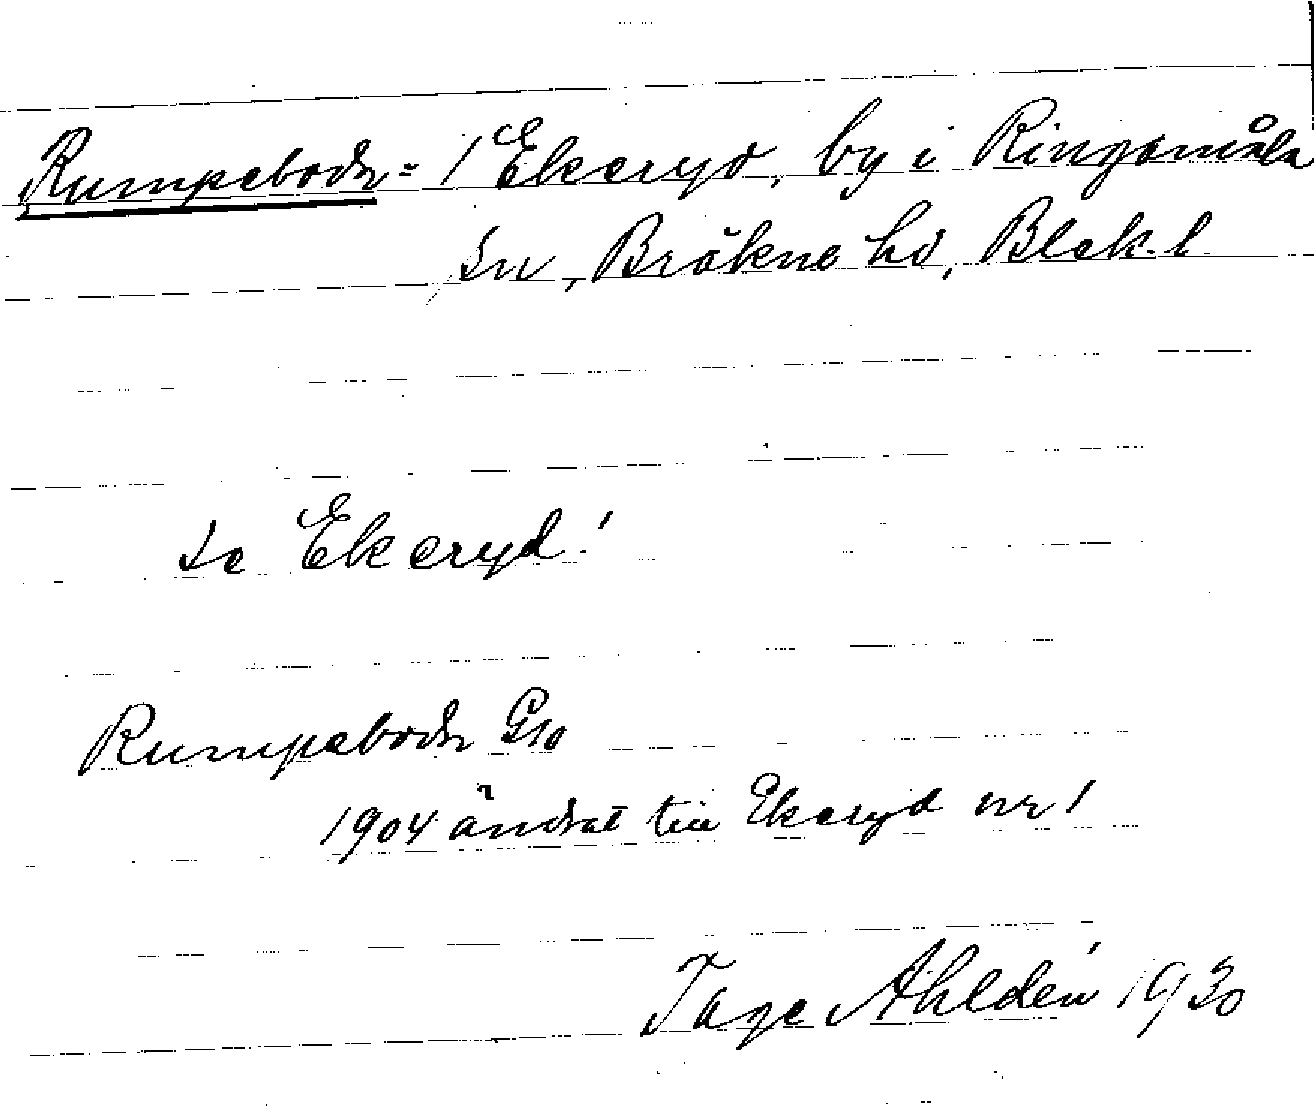 Rumpeboda = 1 Ekeryd, by i Ringamåla
sn, Bräkne hd, Blek. l
se Ekeryd!
Rumpeboda
1904 ändrat till Ekeryd nr 1
Tage Ahldén 1930